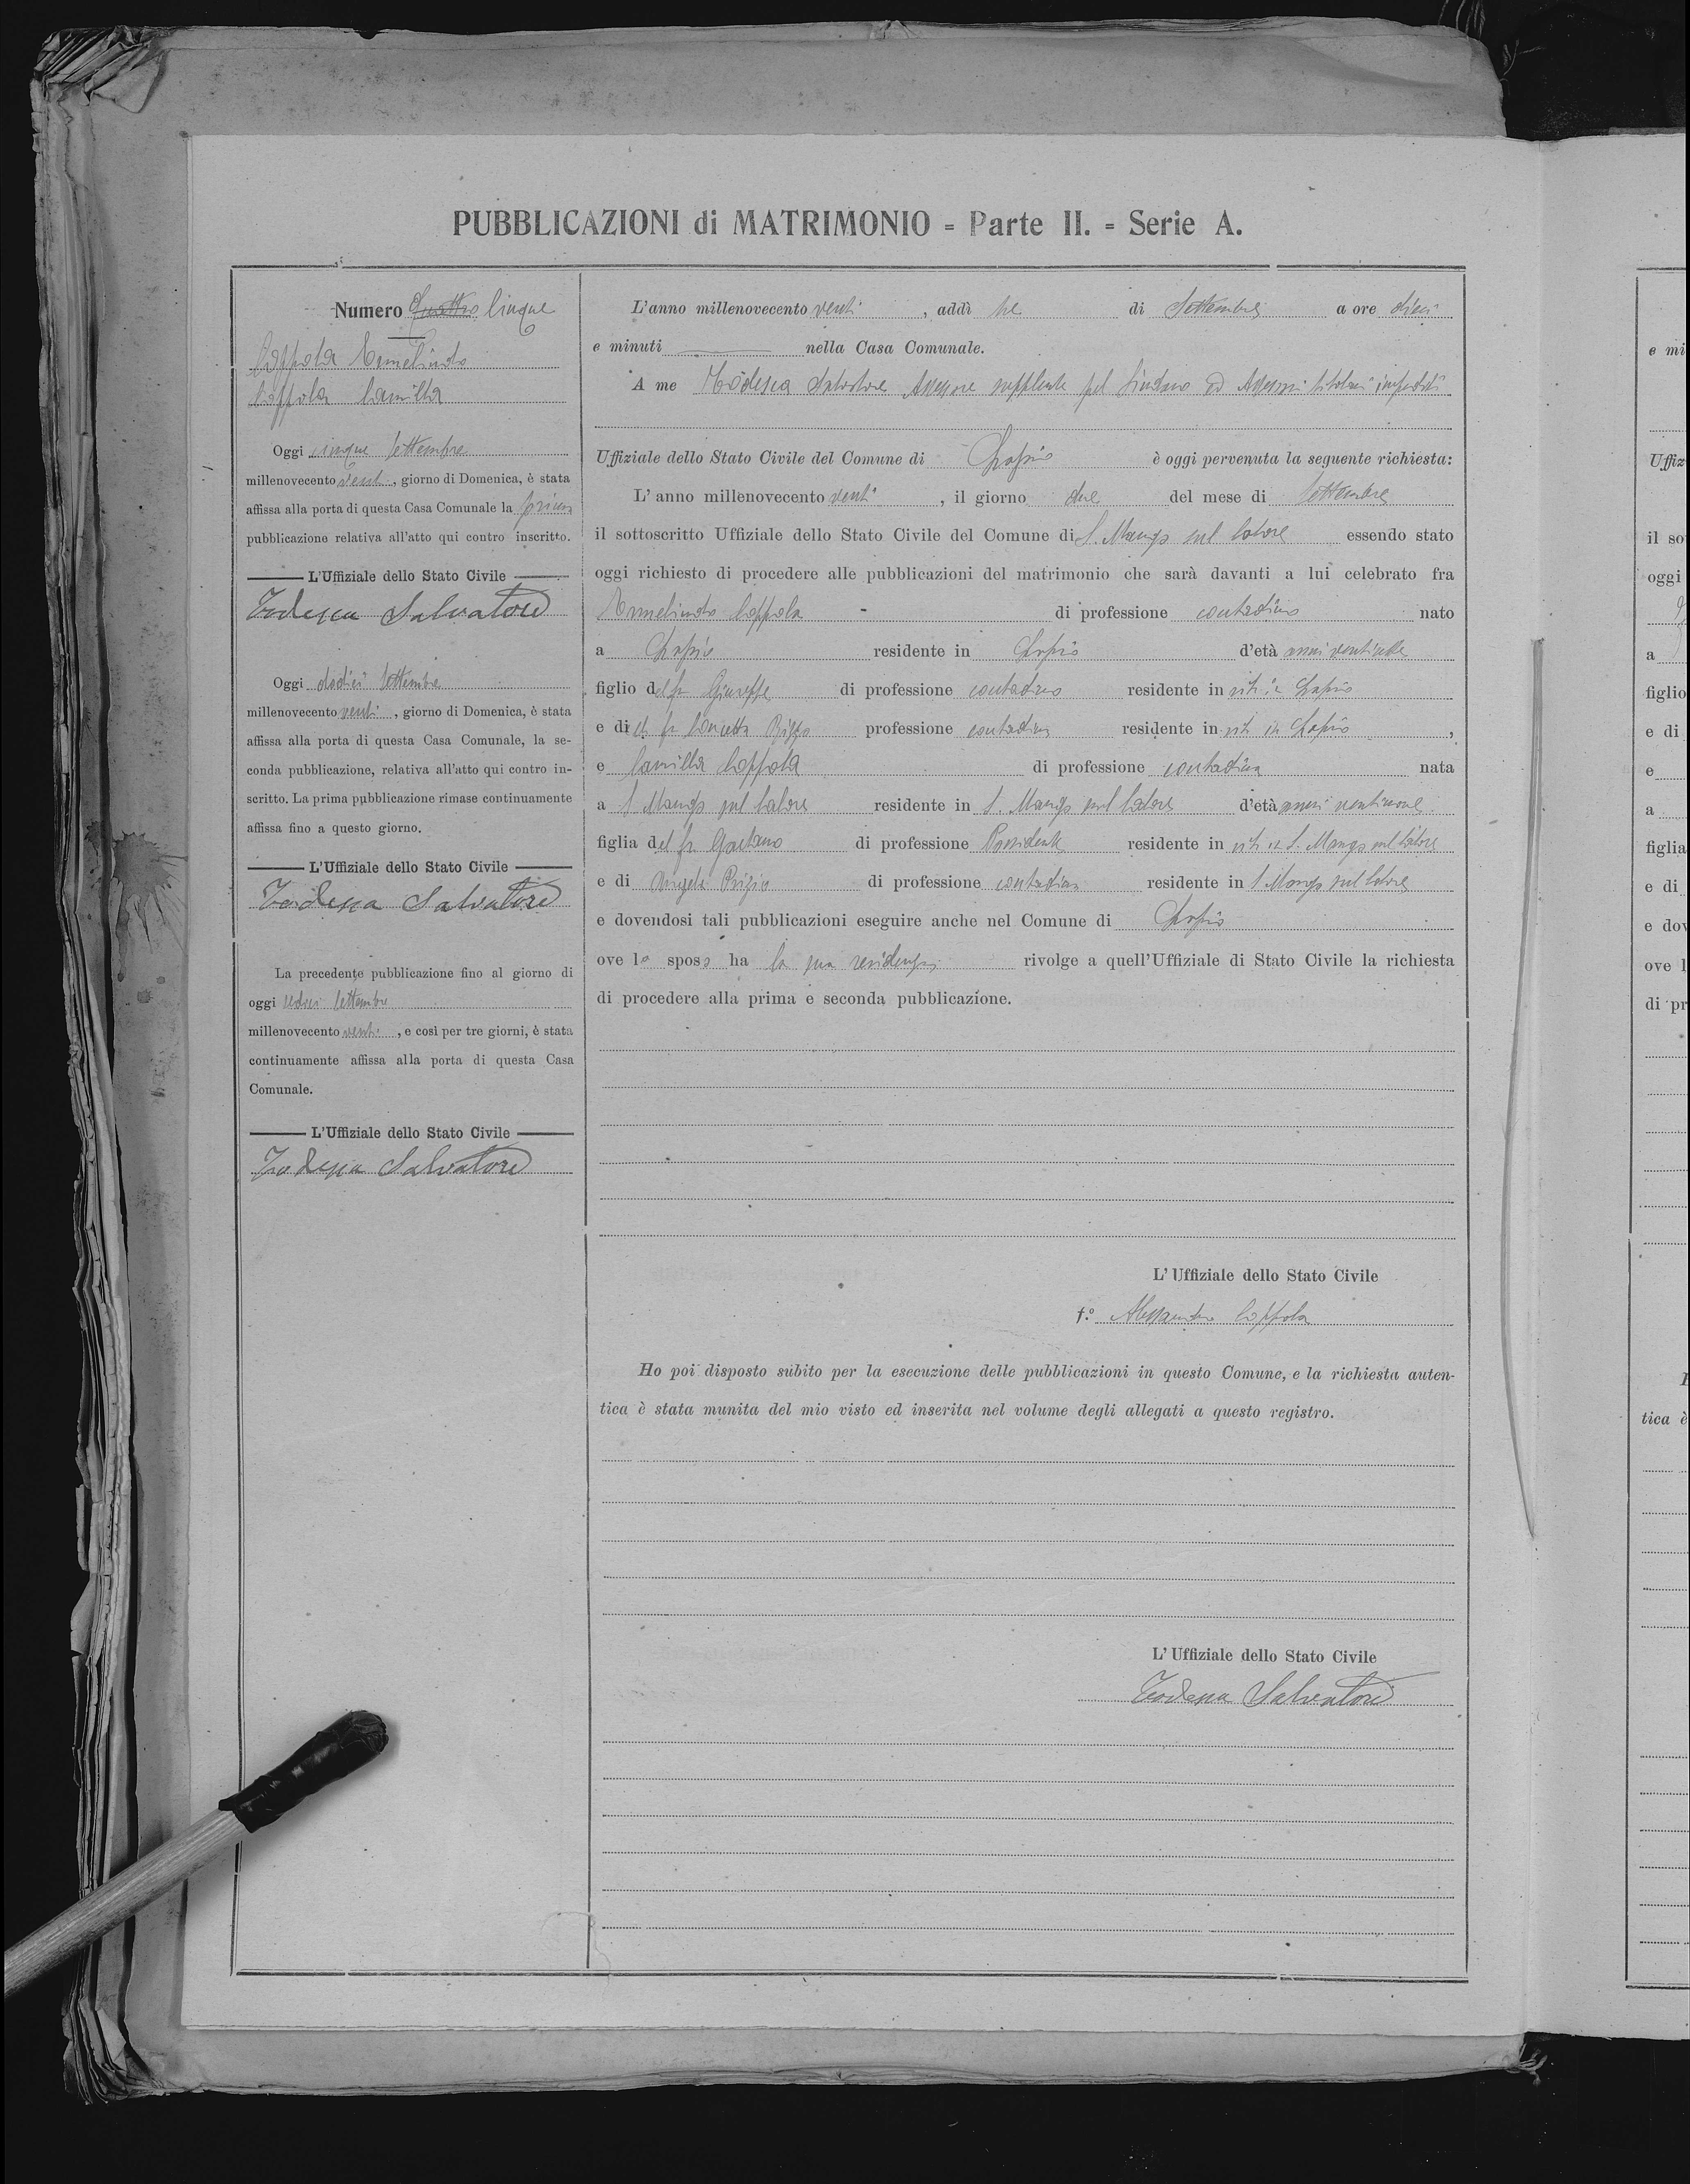 PUBBLICAZIONI di MATRIMONIO = Parte II. = Serie A.
Numero Quattro Cinque
Coppola Ermelindo
Coppola Camilla
Oggi cinque Settembre
millenovecento venti, giorno di Domenica, è stata
affissa alla porta di questa Casa Comunale la prima
pubblicazione relativa all'atto qui contro inscritto.
L'Uffiziale dello Stato Civile
Todesca Salvatore
Oggi dodici Settembre
millenovecento venti, giorno di Domenica, è stata
affissa alla porta di questa Casa Comunale, la se-
conda pubblicazione, relativa all'atto qui contro in-
scritto. La prima pubblicazione rimase continuamente
affissa fino a questo giorno.
L'Uffiziale dello Stato Civile
Todesca Salvatore
La precedente pubblicazione fino al giorno di
oggi sedici Settembre
millenovecento venti, e così per tre giorni, è stata
continuamente affissa alla porta di questa Casa
Comunale.
L'Uffiziale dello Stato Civile
Todesca Salvatore
L'anno millenovecento venti, addì tre di Settembre a ore dieci
e minuti nella Casa Comunale.
A me Todesca Salvatore Assessore supplente pel Sindaco ed Assessori titolari impediti
Uffiziale dello Stato Civile del Comune di Lapio è oggi pervenuta la seguente richiesta:
L'anno millenovecento venti, il giorno due del mese di Settembre
il sottoscritto Uffiziale dello Stato Civile del Comune di S. Mango sul Calore essendo stato
oggi richiesto di procedere alle pubblicazioni del matrimonio che sarà davanti a lui celebrato fra
Ermelindo Coppola di professione contadino nato
a Lapio residente in Lapio d'età anni
figlio del fu Giuseppe di professione contadino residente in in Lapio
e di fu Concetta Rizzo professione contadina residente in in Lapio,
e Camilla Coppola di professione contadina nata
a S. Mango sul Calore residente in S. Mango sul Calore d'età anni ventinove
figlia del fu Gaetano di professione Possidente residente in in S. Mango sul Calore
e di Angela di professione contadina residente in S. Mango sul Calore
e dovendosi tali pubblicazioni eseguire anche nel Comune di Lapio
ove lo sposo ha la sua residenza rivolge a quell'Uffiziale di Stato Civile la richiesta
di procedere alla prima e seconda pubblicazione.
L'Uffiziale dello Stato Civile
f.° Alessandro Coppola
Ho poi disposto subito per la esecuzione delle pubblicazioni in questo Comune, e la richiesta auten-
tica è stata munita del mio visto ed inserita nel volume degli allegati a questo registro.
L'Uffiziale dello Stato Civile
Todesca Salvatore
e mi
Uffiz
il so
oggi
a
figlio
e di
e
a
figlia
e di
e dov
ove l
di pr
tica è